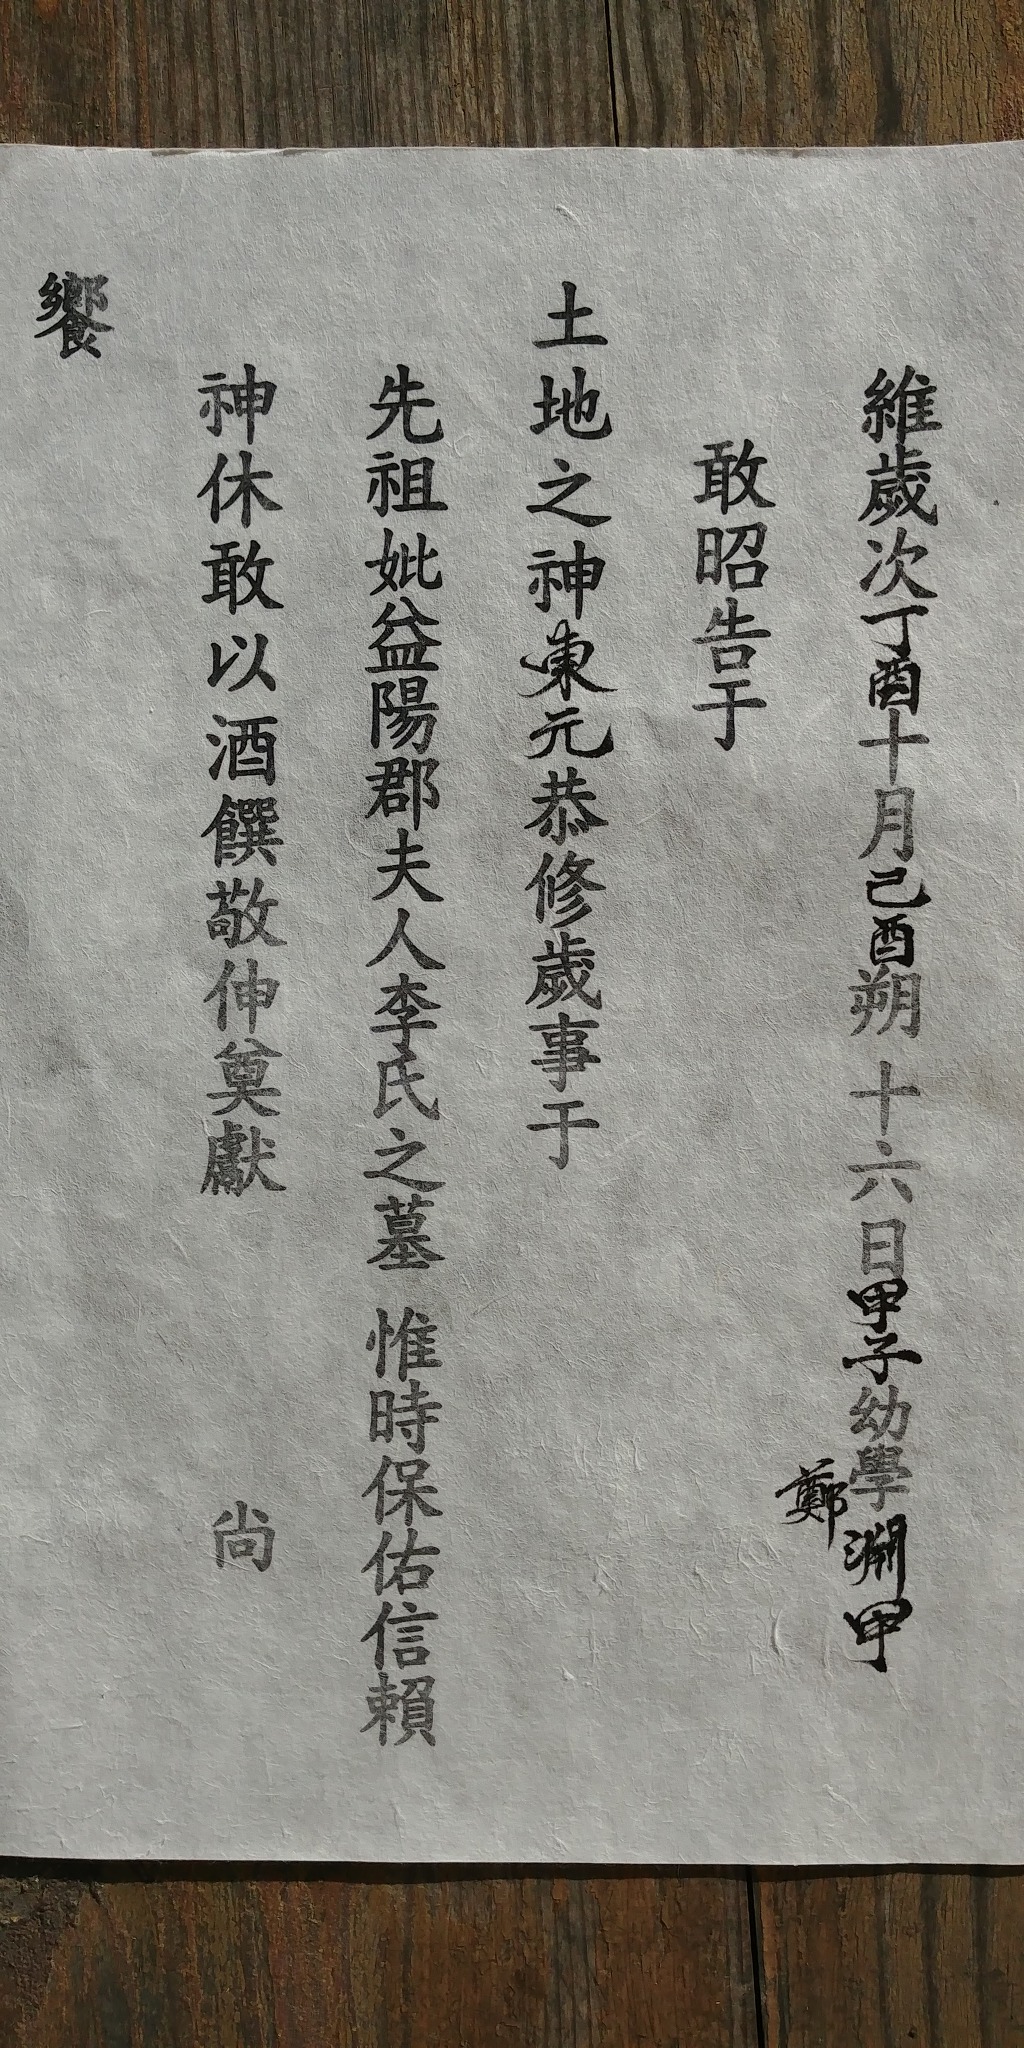 維歲次丁酉十月己酉朔 十六日甲子幼學鄭淵甲
敢昭告于
土地之神東元恭修歲事于
先祖妣益陽郡夫人李氏之墓 惟時保佑信賴
神休敢以酒饌敬伸奠獻 尙
饗